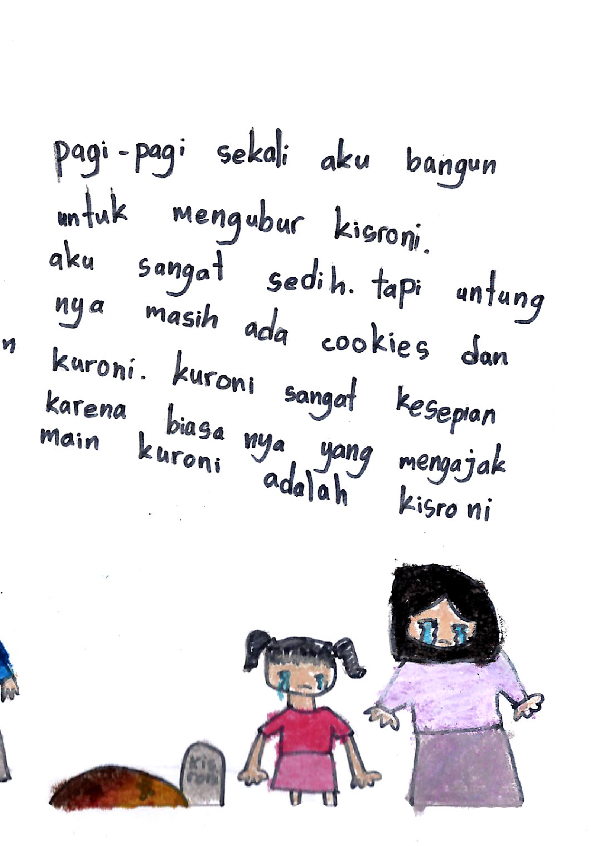 pagi-pagi sekali aku bangun
untuk mengubur kisroni.
aku sangat sedih. tapi untung
nya masih ada cookies dan
n
kuroni. kuroni sangat kesepian
karena biasa nya yang mengajak
main kuroni adalah kisroni
kis